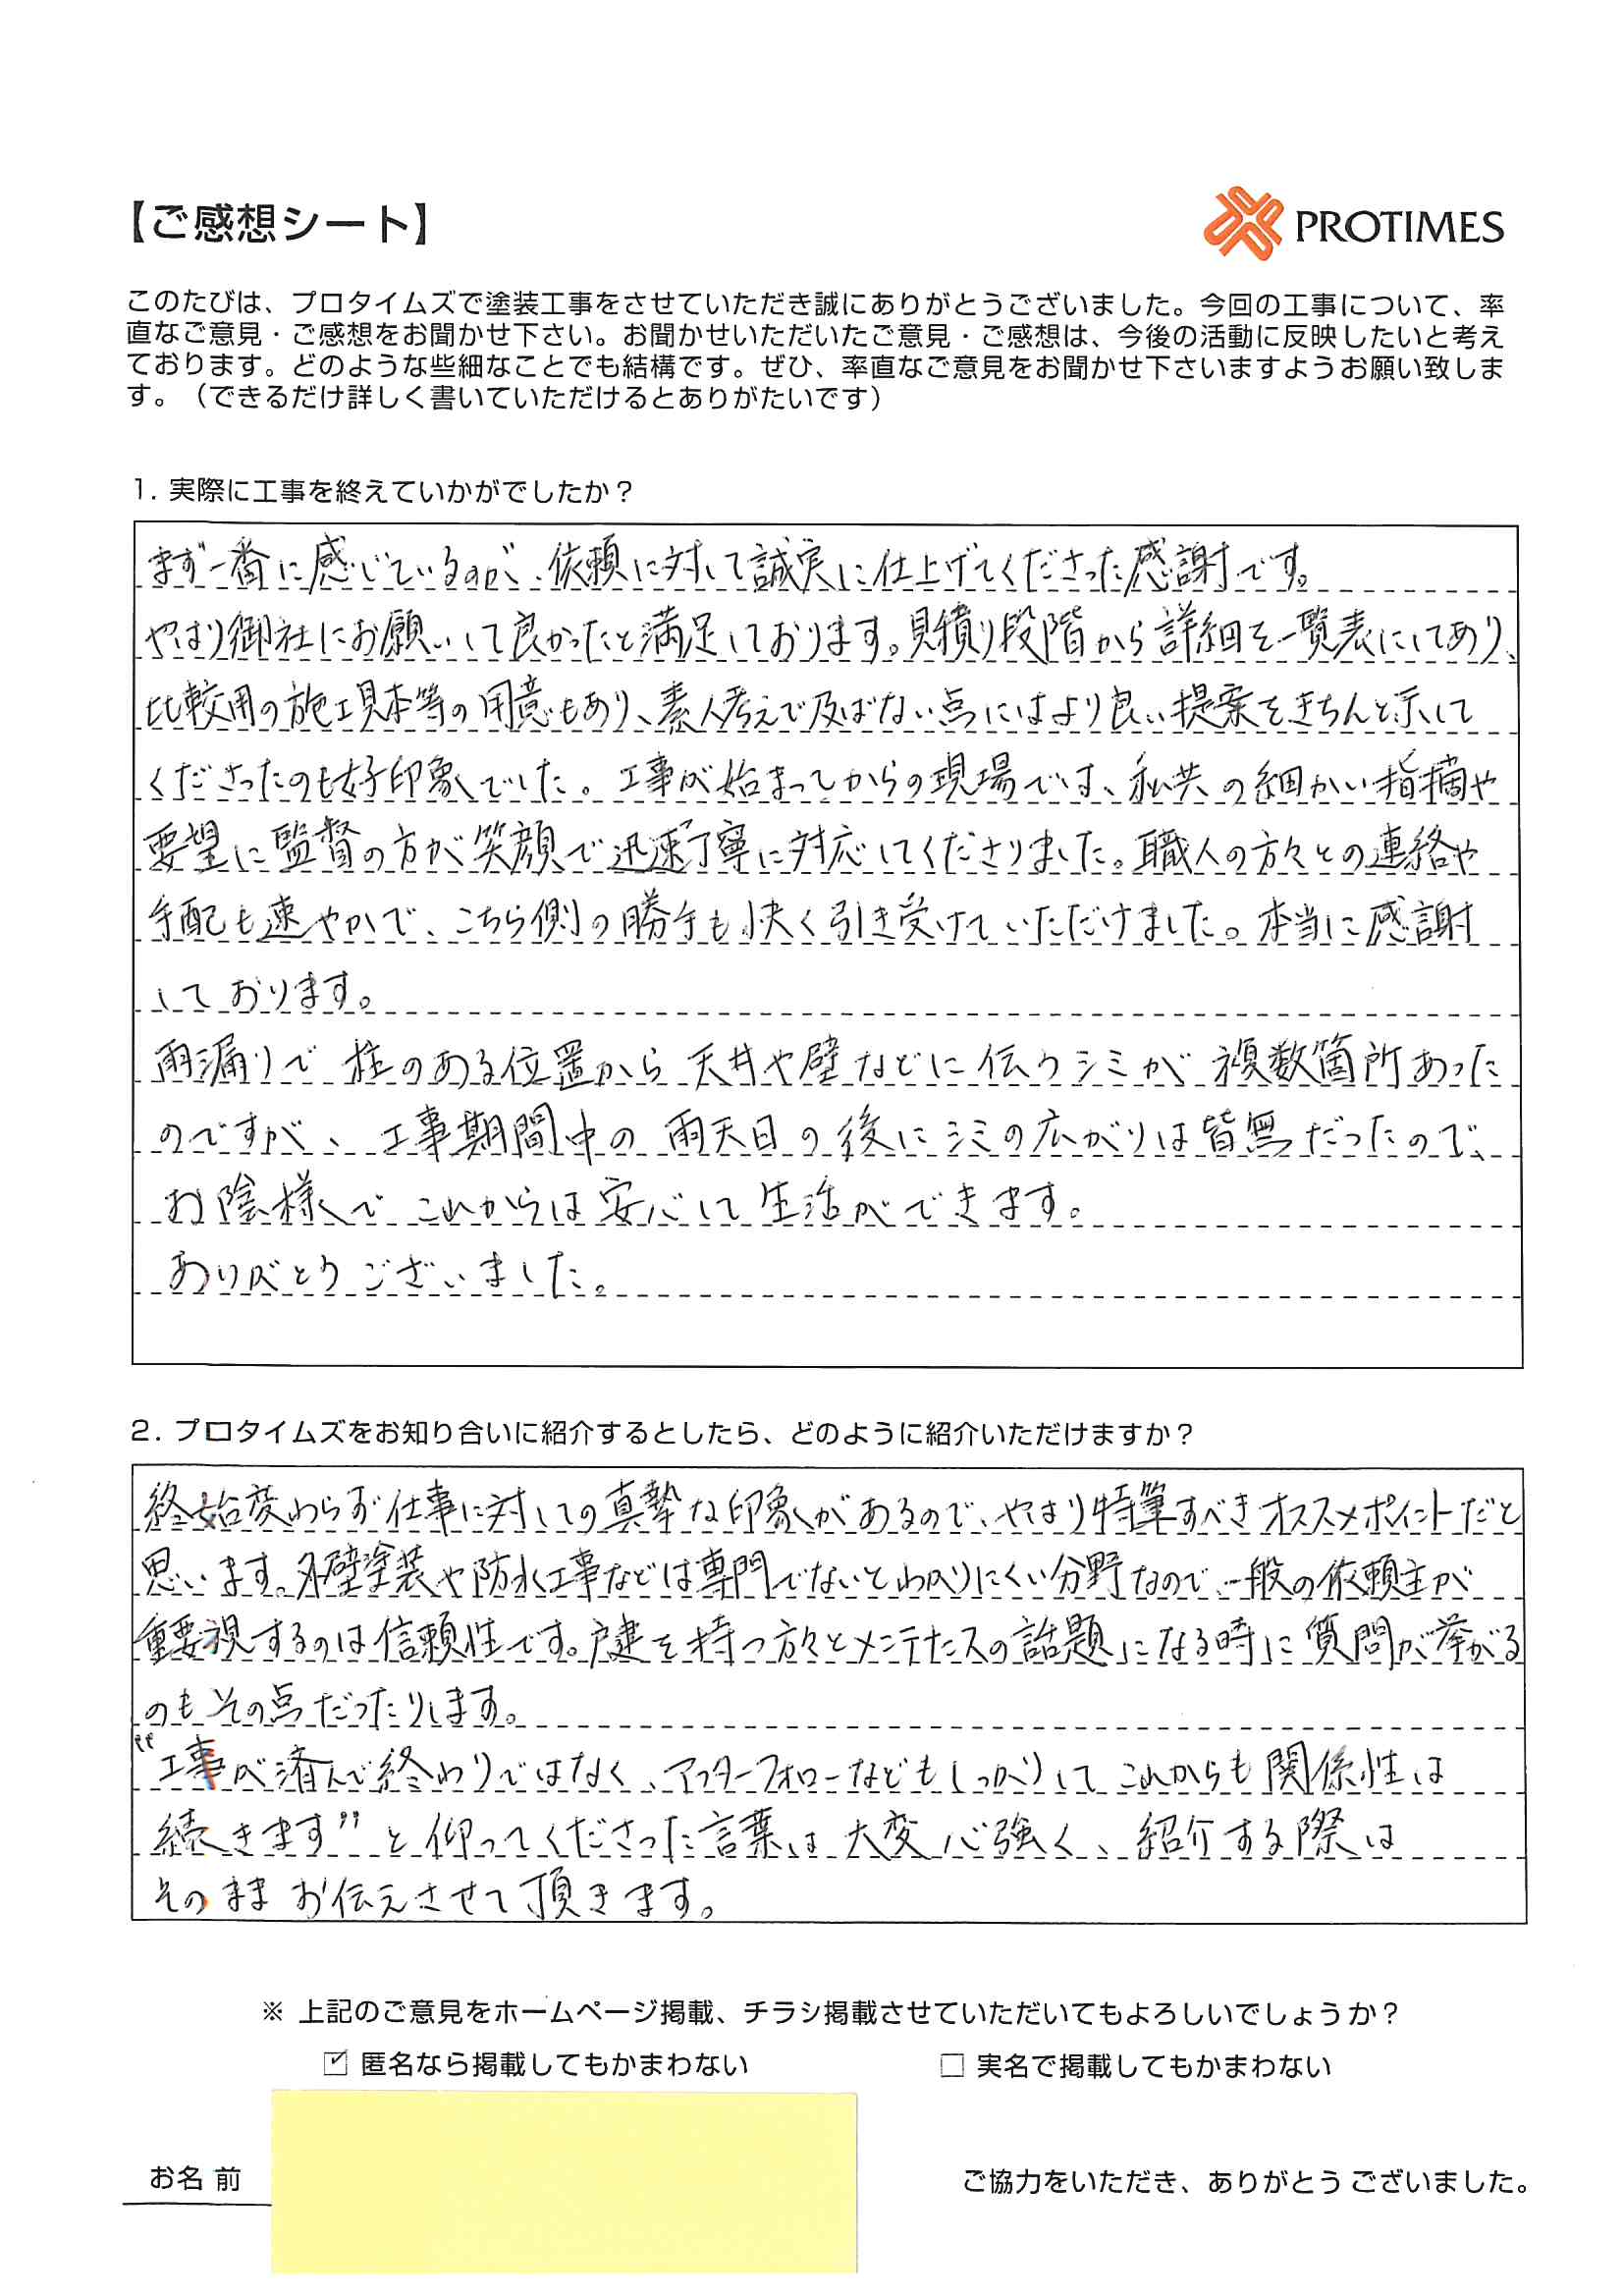 【ご感想シート】
PROTIMES
このたびは、プロタイムズで塗装工事をさせていただき誠にありがとうございました。今回の工事について、率
直なご意見・ご感想をお聞かせ下さい。お聞かせいただいたご意見・ご感想は、今後の活動に反映したいと考え
ております。どのような些細なことでも結構です。ぜひ、率直なご意見をお聞かせ下さいますようお願い致しま
す。（できるだけ詳しく書いていただけるとありがたいです）
1. 実際に工事を終えていかがでしたか？
まず一番に感じているのが、依頼に対して誠実に仕上げてくださった感謝です。
やはり御社にお願いして良かったと満足しております。見積り段階から詳細を一覧表にしてあり、
比較用の施工見本等の用意もあり、素人考えで及ばない点にはより良い提案をきちんと示して
くださったのも好印象でした。工事が始まってからの現場では、私共の細かい指摘や
要望に監督の方が笑顔で迅速丁寧に対応してくださりました。職人の方々との連絡や
手配も速やかで、こちら側の勝手も快く引き受けていただけました。本当に感謝
しております。
雨漏りで柱のある位置から天井や壁などに伝うシミが複数箇所あった
のですが、工事期間中の雨天日の後にシミの広がりは皆無だったので、
お陰様でこれからは安心して生活ができます。
ありがとうございました。
2. プロタイムズをお知り合いに紹介するとしたら、どのように紹介いただけますか？
終始変わらず仕事に対しての真摯な印象があるので、やはり特筆すべきオススメポイントだと
思います。外壁塗装や防水工事などは専門でないとわかりにくい分野なので、一般の依頼主が
重要視するのは信頼性です。戸建を持つ方々とメンテナンスの話題になる時に質問が挙がる
のもその点だったりします。
“工事が済んで終わりではなく、アフターフォローなどもしっかりしてこれからも関係性は
続きます”と仰ってくださった言葉は大変心強く、紹介する際は
そのままお伝えさせて頂きます。
※ 上記のご意見をホームページ掲載、チラシ掲載させていただいてもよろしいでしょうか？
☑ 匿名なら掲載してもかまわない □ 実名で掲載してもかまわない
お名前 ご協力をいただき、ありがとうございました。